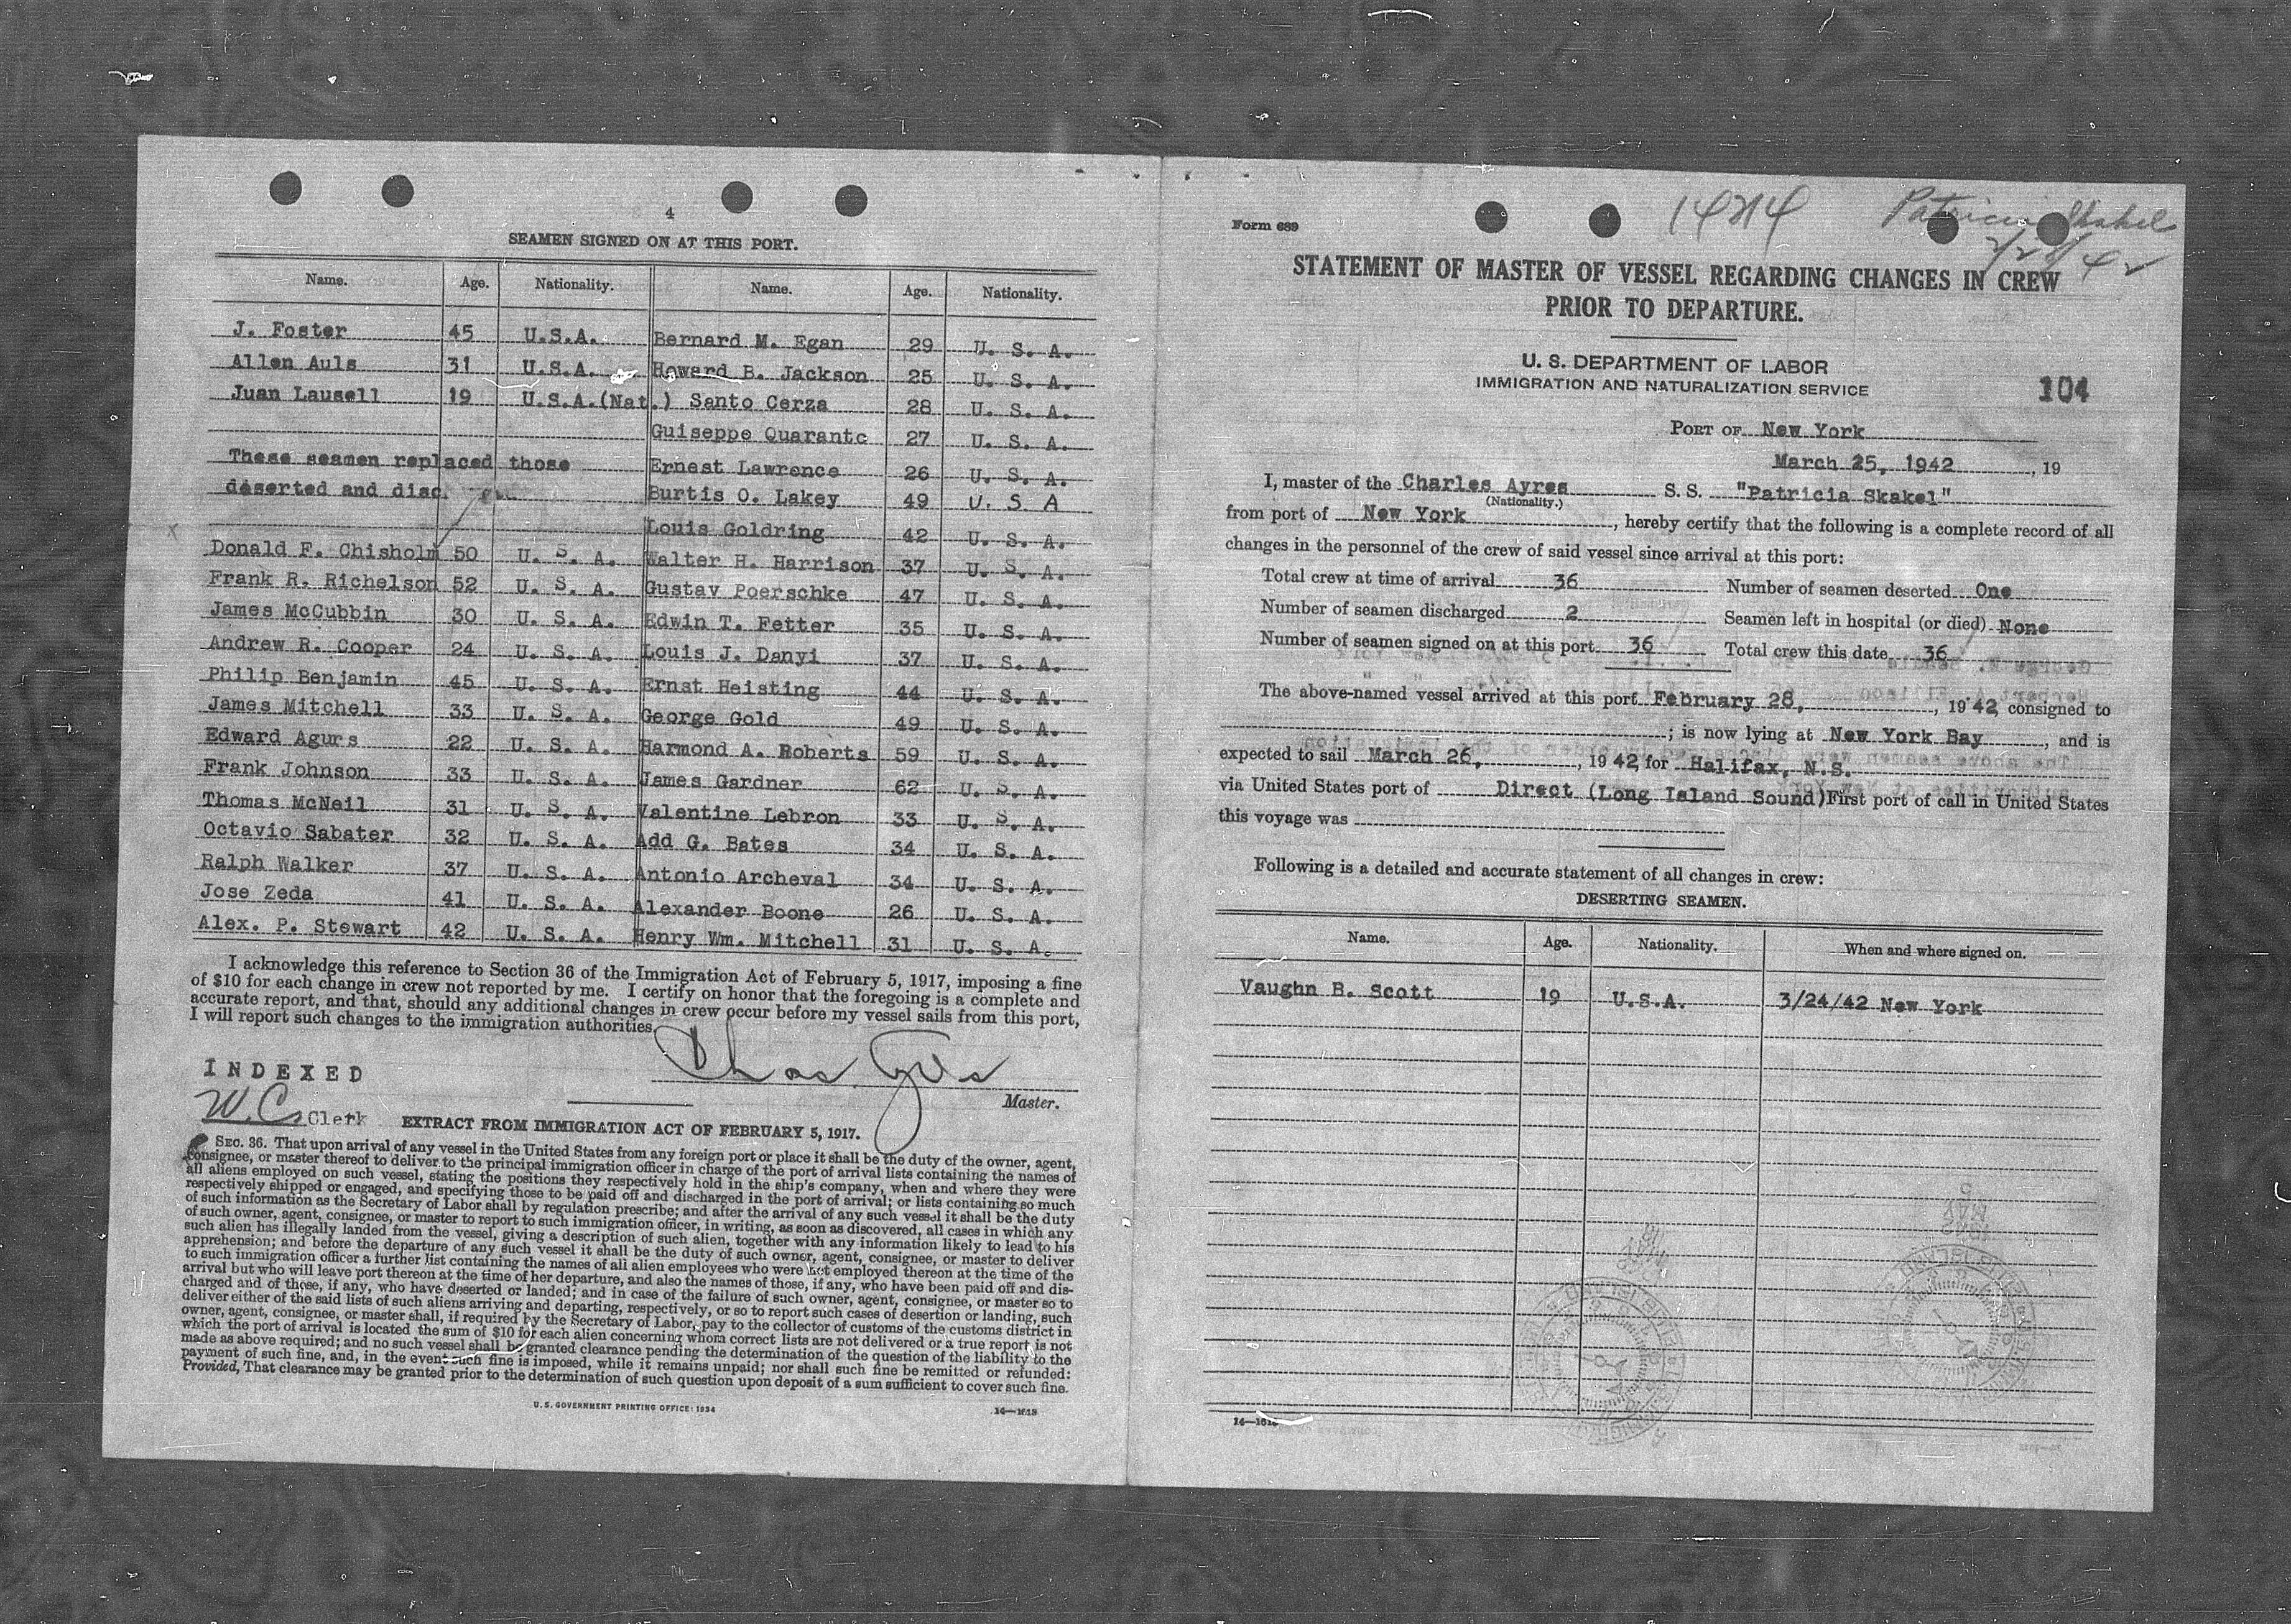 4
SEAMEN SIGNED ON AT THIS PORT.
Name. Age. Nationality. Name. Age. Nationality.
J. Foster 45 U.S.A. Bernard M. Egan 29 U. S. A.
Allen Auls 31 U.S.A. Howard B. Jackson 25 U. S. A.
Juan Lausell 19 U.S.A.(Nat.) Santo Cerza 28 U. S. A.
Guiseppe Quarantc 27 U. S. A.
These seamen replaced those Ernest Lawrence 26 U. S. A.
deserted and disc. Burtis O. Lakey 49 U. S A
Louis Goldring 42 U. S. A.
Donald F. Chisholm 50 U. S. A. Walter H. Harrison 37 U. S. A.
Frank R. Richelson 52 U. S. A. Gustav Poerschke 47 U. S. A.
James McCubbin 30 U. S. A. Edwin T. Fetter 35 U. S. A.
Andrew R. Cooper 24 U. S. A. Louis J. Danyi 37 U. S. A.
Philip Benjamin 45 U. S. A. Ernst Heisting 44 U. S. A.
James Mitchell 33 U. S. A. George Gold 49 U. S. A.
Edward Agurs 22 U. S. A. Harmond A. Roberts 59 U. S. A.
Frank Johnson 33 U. S. A. James Gardner 62 U. S. A.
Thomas McNeil 31 U. S. A. Valentine Lebron 33 U. S. A.
Octavio Sabater 32 U. S. A. Add G. Bates 34 U. S. A.
Ralph Walker 37 U. S. A. Antonio Archeval 34 U. S. A.
Jose Zeda 41 U. S. A. Alexander Boone 26 U. S. A.
Alex. P. Stewart 42 U. S. A. Henry Wm. Mitchell 31 U. S. A.
I acknowledge this reference to Section 36 of the Immigration Act of February 5, 1917, imposing a fine
of $10 for each change in crew not reported by me. I certify on honor that the foregoing is a complete and
accurate report, and that, should any additional changes in crew occur before my vessel sails from this port,
I will report such changes to the immigration authorities.
Chas. Ayres
Master.
INDEXED
W.C. Clerk
EXTRACT FROM IMMIGRATION ACT OF FEBRUARY 5, 1917.
SEC. 36. That upon arrival of any vessel in the United States from any foreign port or place it shall be the duty of the owner, agent,
consignee, or master thereof to deliver to the principal immigration officer in charge of the port of arrival lists containing the names of
all aliens employed on such vessel, stating the positions they respectively hold in the ship's company, when and where they were
respectively shipped or engaged, and specifying those to be paid off and discharged in the port of arrival; or lists containing so much
of such information as the Secretary of Labor shall by regulation prescribe; and after the arrival of any such vessel it shall be the duty
of such owner, agent, consignee, or master to report to such immigration officer, in writing, as soon as discovered, all cases in which any
such alien has illegally landed from the vessel, giving a description of such alien, together with any information likely to lead to his
apprehension; and before the departure of any such vessel it shall be the duty of such owner, agent, consignee, or master to deliver
to such immigration officer a further list containing the names of all alien employees who were not employed thereon at the time of the
arrival but who will leave port thereon at the time of her departure, and also the names of those, if any, who have been paid off and dis-
charged and of those, if any, who have deserted or landed; and in case of the failure of such owner, agent, consignee, or master so to
deliver either of the said lists of such aliens arriving and departing, respectively, or so to report such cases of desertion or landing, such
owner, agent, consignee, or master shall, if required by the Secretary of Labor, pay to the collector of customs of the customs district in
which the port of arrival is located the sum of $10 for each alien concerning whom correct lists are not delivered or a true report is not
made as above required; and no such vessel shall be granted clearance pending the determination of the question of the liability to the
payment of such fine, and, in the event such fine is imposed, while it remains unpaid; nor shall such fine be remitted or refunded:
Provided, That clearance may be granted prior to the determination of such question upon deposit of a sum sufficient to cover such fine.
U. S. GOVERNMENT PRINTING OFFICE: 1934 14—1618
Form 689
14214
Patricia Skakel
2/28/42
STATEMENT OF MASTER OF VESSEL REGARDING CHANGES IN CREW
PRIOR TO DEPARTURE.
U. S. DEPARTMENT OF LABOR
IMMIGRATION AND NATURALIZATION SERVICE
104
PORT OF New York
March 25, 1942, 19
I, master of the Charles Ayres S. S. "Patricia Skakel"
(Nationality.)
from port of New York, hereby certify that the following is a complete record of all
changes in the personnel of the crew of said vessel since arrival at this port:
Total crew at time of arrival 36 Number of seamen deserted One
Number of seamen discharged 2 Seamen left in hospital (or died) None
Number of seamen signed on at this port 36 Total crew this date 36
The above-named vessel arrived at this port February 28, , 1942 consigned to
; is now lying at New York Bay, and is
expected to sail March 26, , 1942 for Halifax, N.S.
via United States port of Direct (Long Island Sound) First port of call in United States
this voyage was
Following is a detailed and accurate statement of all changes in crew:
DESERTING SEAMEN.
Name. Age. Nationality. When and where signed on.
Vaughn B. Scott 19 U.S.A. 3/24/42 New York
14—1618